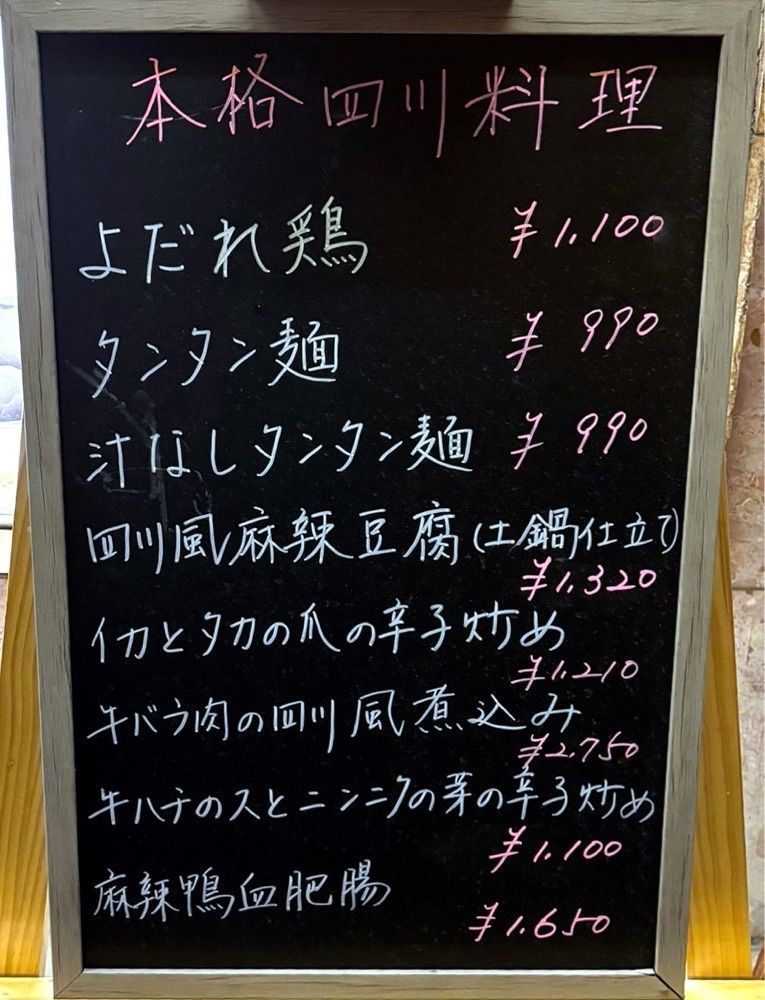 本格四川料理
よだれ鶏 ¥1,100
タンタン麺 ¥990
汁なしタンタン麺 ¥990
四川風麻辣豆腐(土鍋仕立て)
¥1,320
イカとタカの爪の辛子炒め
¥1,210
牛バラ肉の四川風煮込み
¥2,750
牛ハチのスとニンニクの芽の辛子炒め
¥1,100
麻辣鴨血肥腸
¥1,650